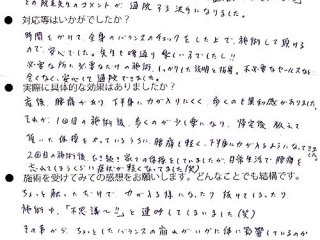 の院長先生のコメントが、通院する決め手になりました。
対応等はいかがでしたか?
時間をかけて全身のバランスのチェックをした上で、施術して頂ける
ので、安心でした。先生も優しく楽しい方でした!!
必要な所に必要なだけの施術、しっかりした説明と指導。不必要なセールスなど
全くなく、安心して通院できました。
実際に具体的な効果はありましたか?
産後、腰痛があり、下半身に力が入りにくく、歩くのも違和感がありました。
それが、1回目の施術後、歩くのが少し楽になり、帰宅後、教えて
頂いた体操をやっているうちに、腰痛も軽く、下半身に力が入るようになってきて
2回目の施術後、引き続き家での体操をしていましたが、日常生活で腰痛を
忘れてしまうくらい症状が軽くなってました(笑)
施術を受けてみての感想をお願いします。どんなことでも結構です。
ちょっと触っただけで、力が入る様になったり抜けてしまったり
施術中、「不思議〜!!」と連呼してしまいました(笑)
その事から、ちょっとしたバランスの崩れがいかに体に影響しているのか